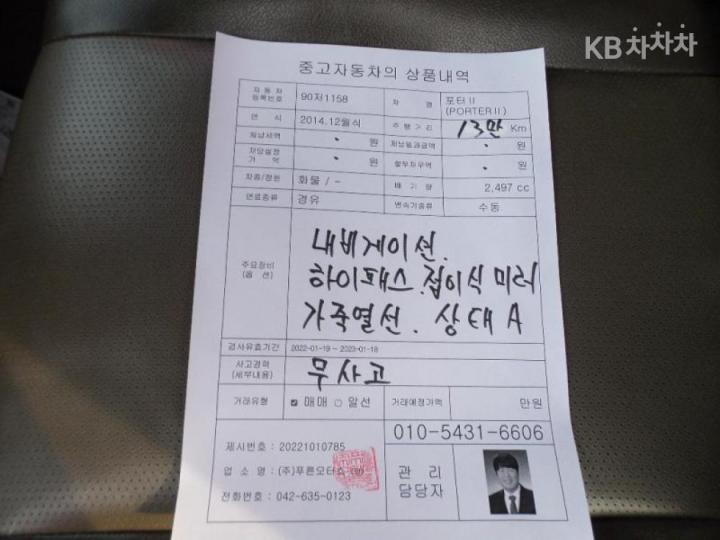 KB차차차
중고자동차의 상품내역
자동차등록번호 90저1158 차 명 포터Ⅱ (PORTERⅡ)
연 식 2014.12월식 주행거리 13만 Km
체납세액 · 원 체납범과금액 · 원
저당설정가액 · 원 할부채무액 · 원
차종/정원 화물 / - 배 기 량 2,497 cc
연료종류 경유 변속기종류 수동
주요장비(옵션)
내비게이션.
하이패스.접이식 미러
가죽열선. 상태 A
검사유효기간 2022-01-19 ~ 2023-01-18
사고경력(세부내용) 무사고
거래유형 ☑ 매매 ○ 알선 거래예정가액 만원
010-5431-6606
제시번호 : 20221010785
업 소 명 : (주)푸른모터스
관 리
담당자
전화번호 : 042-635-0123